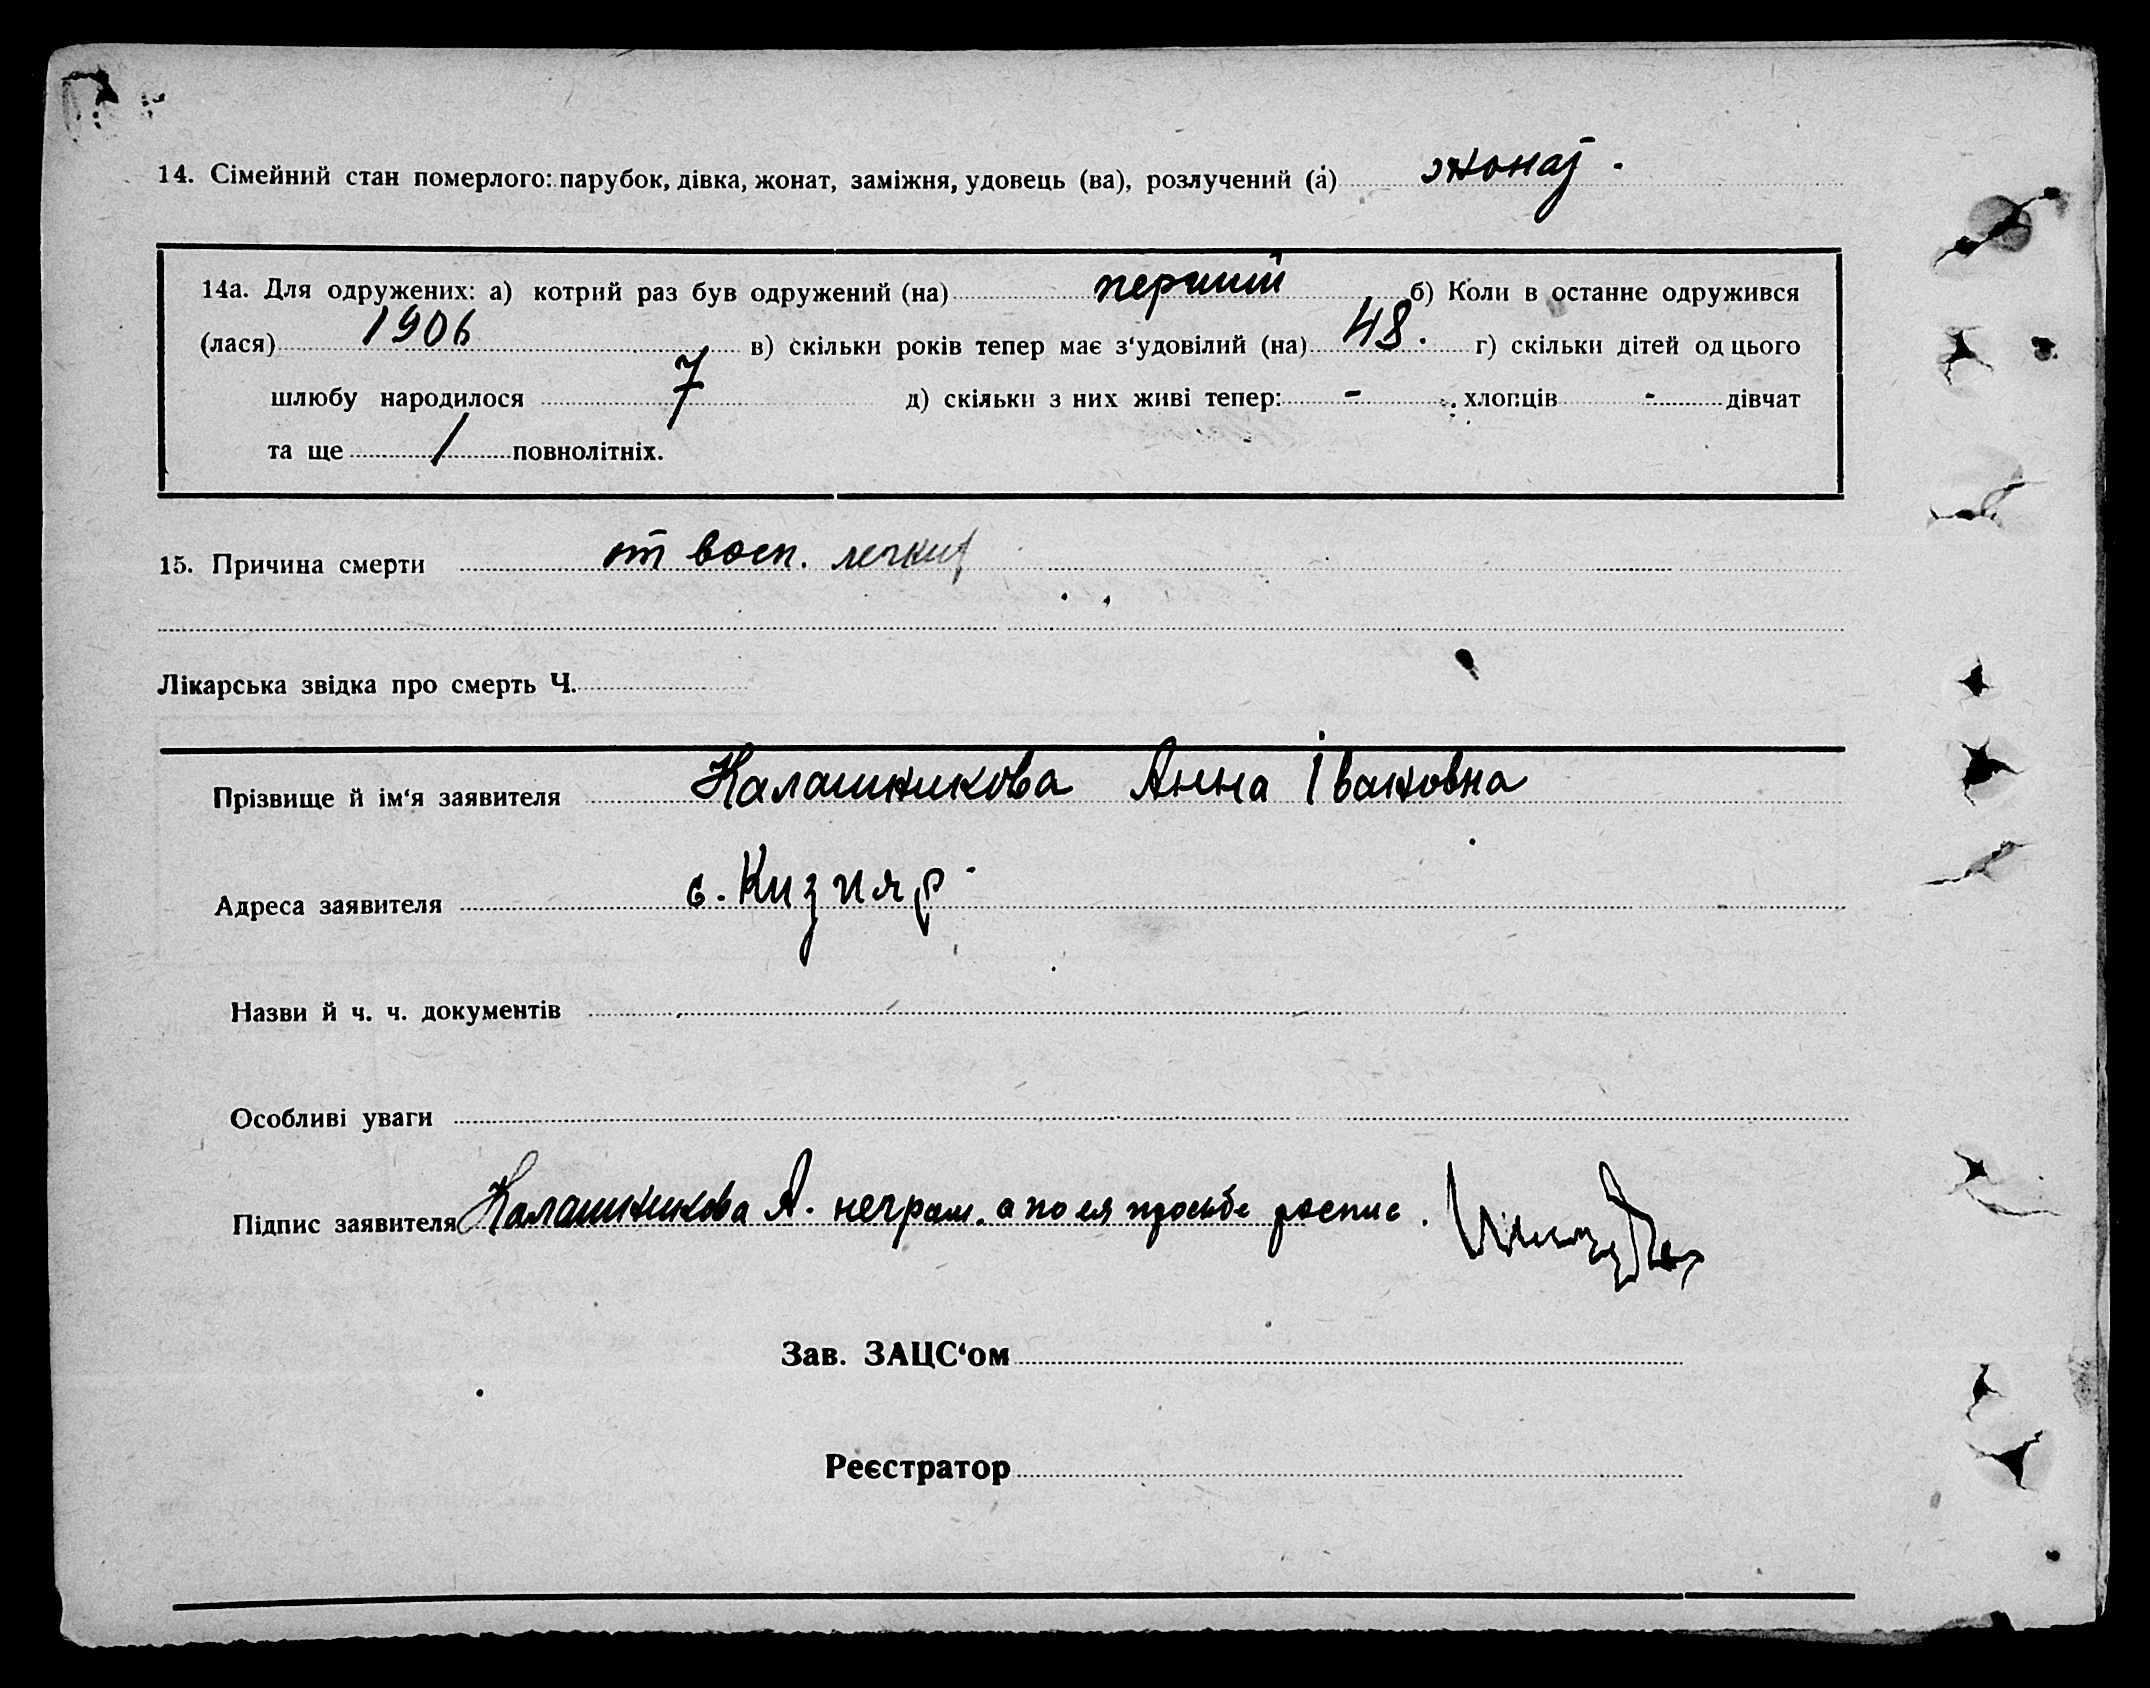 14. Сімейний стан померлого: парубок, дівка, жонат, заміжня, удовець (ва), розлучений (а) жонат.
14а. Для одружених: а) котрий раз був одружений (на) перший б) Коли в останнє одружився
(лася) 1906 в) скільки років тепер має з‘удовілий (на) 48. г) скільки дітей од цього
шлюбу народилося 7 д) скільки з них живі тепер: - хлопців - дівчат
та ще 1 повнолітніх.
15. Причина смерти от восп. легких
Лікарська звідка про смерть Ч.
Прізвище й ім‘я заявителя Калашникова Анна Івановна
Адреса заявителя с. Кизияр
Назви й ч. ч. документів
Особливі уваги
Підпис заявителя Калашникова А. неграм. а по ея просьбе роспис.
Зав. ЗАЦС‘ом
Реєстратор